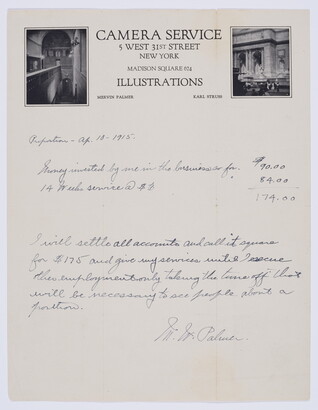 CAMERA SERVICE
5 WEST 31ST STREET
NEW YORK
MADISON SQUARE 874
ILLUSTRATIONS
MERVIN PALMER
KARL STRUSS
Proposition - Ap. 18 - 1915.
Money invested by me in the business so far. $90.00
14 Weeks service @ $6 " 84.00
174.00
I will settle all accounts and call it square
for $175 and give my services until I secure
other employment only taking the time off that
will be necessary to see people about a
position.
M. W. Palmer.